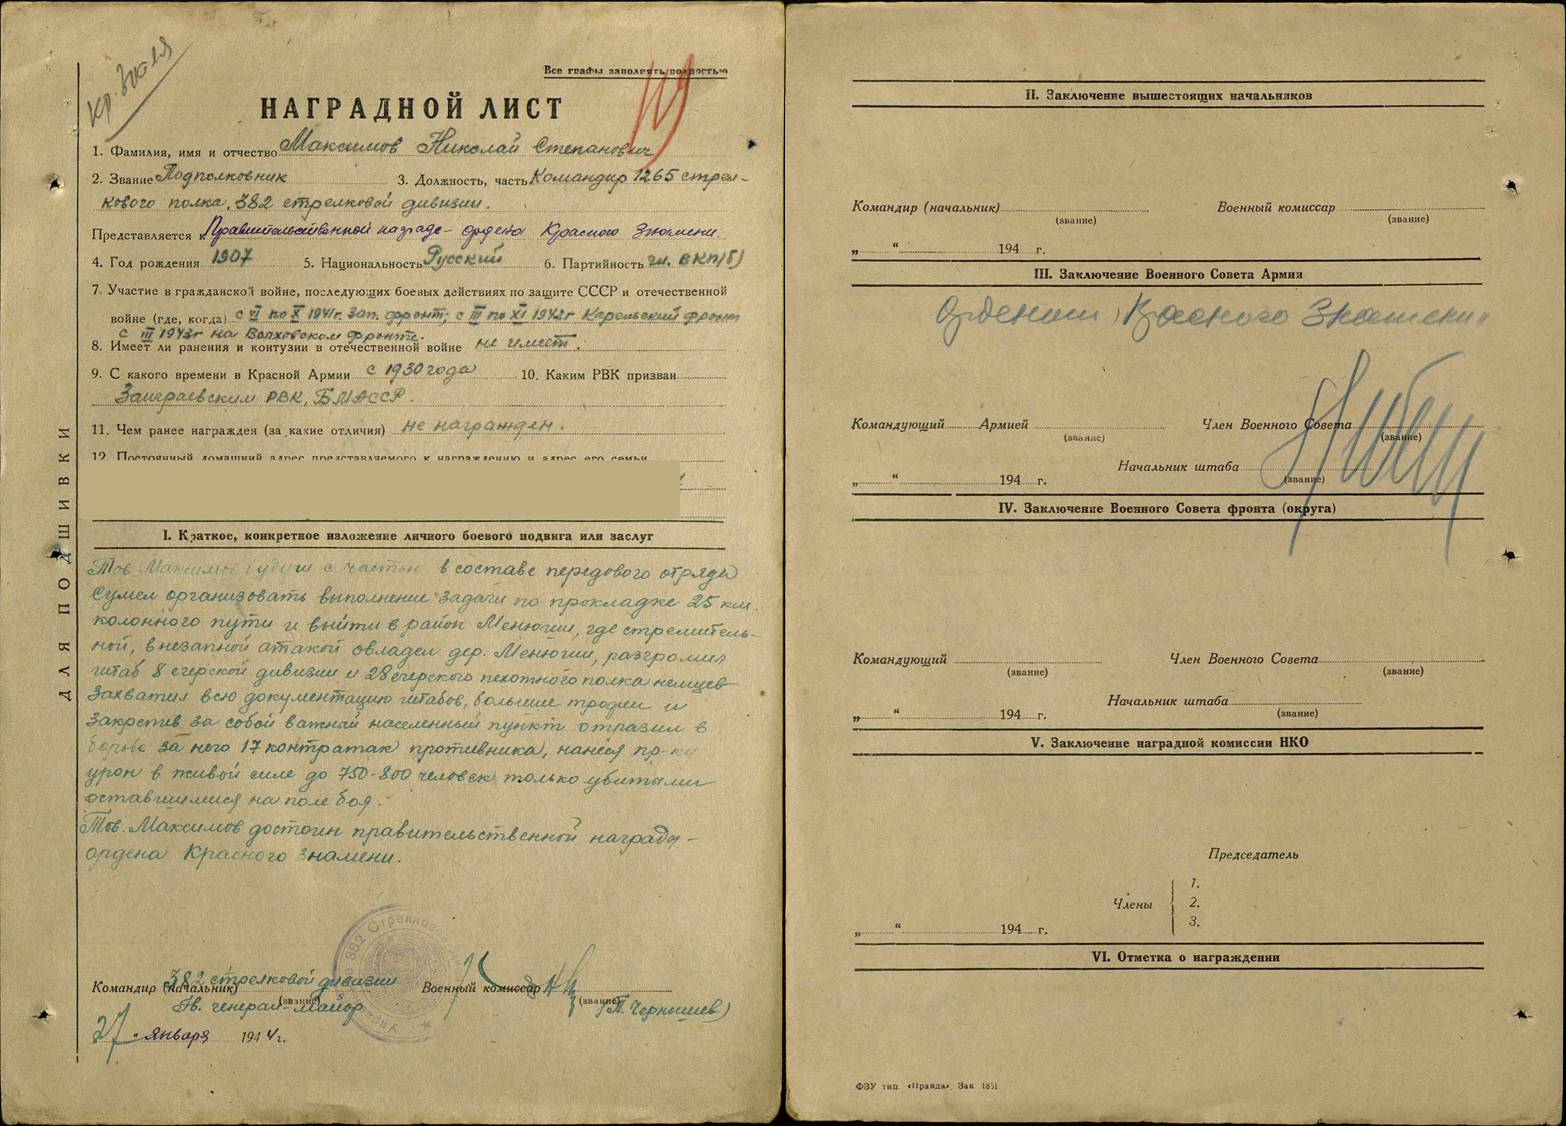 Кр. Знамя
Все графы заполнять полностью
119
НАГРАДНОЙ ЛИСТ
1. Фамилия, имя и отчество Максимов Николай Степанович
2. Звание Подполковник 3. Должность, часть Командир 1265 стрел-
кового полка, 382 стрелковой дивизии.
Представляется к Правительственной награде - ордена Красного Знамени.
4. Год рождения 1907 5. Национальность Русский 6. Партийность чл. ВКП(б)
7. Участие в гражданской войне, последующих боевых действиях по защите СССР и отечественной
войне (где, когда) с VI по X 1941г. Зап. фронт; с III по XI 1942г Карельский фронт
с III 1943г на Волховском фронте.
8. Имеет ли ранения и контузии в отечественной войне не имеет.
9. С какого времени в Красной Армии с 1930 года 10. Каким РВК призван
Заиграевским РВК, БМАССР.
11. Чем ранее награжден (за какие отличия) не награжден.
12. Постоянный домашний адрес представляемого к награждению и адрес его семьи
I. Краткое, конкретное изложение личного боевого подвига или заслуг
Тов. Максимов будучи с частью в составе передового отряда
Сумел организовать выполнение задачи по прокладке 25 км.
колонного пути и выйти в район Менюши, где стремитель-
ной, внезапной атакой овладел дер. Менюши, разгромил
штаб 8 егерской дивизии и 28 егерского пехотного полка немцев
Захватил всю документацию штабов, большие трофеи и
Закрепив за собой важный населенный пункт отразил в
борьбе за него 17 контратак противника, нанеся пр-ку
урон в живой силе до 750-800 человек только убитыми
оставшимися на поле боя.
Тов. Максимов достоин правительственной награды -
ордена Красного Знамени.
382 стрелковой дивизии
Командир (начальник) Военный комиссар
(звание) (звание)
Гв. генерал-майор (П. Чернышев)
27 " января 1944 г.
382 Стрелковой
ДЛЯ ПОДШИВКИ
II. Заключение вышестоящих начальников
Командир (начальник) Военный комиссар
(звание) (звание)
„ “ 194 г.
III. Заключение Военного Совета Армии
Орденом "Красного Знамени"
Командующий Армией Член Военного Совета
(звание) (звание)
Начальник штаба
(звание)
„ “ 194 г.
IV. Заключение Военного Совета фронта (округа)
Командующий Член Военного Совета
(звание) (звание)
Начальник штаба
(звание)
„ “ 194 г.
V. Заключение наградной комиссии НКО
Председатель
Члены
1.
2.
3.
„ “ 194 г.
VI. Отметка о награждении
ФЗУ тип. «Правда». Зак. 1851